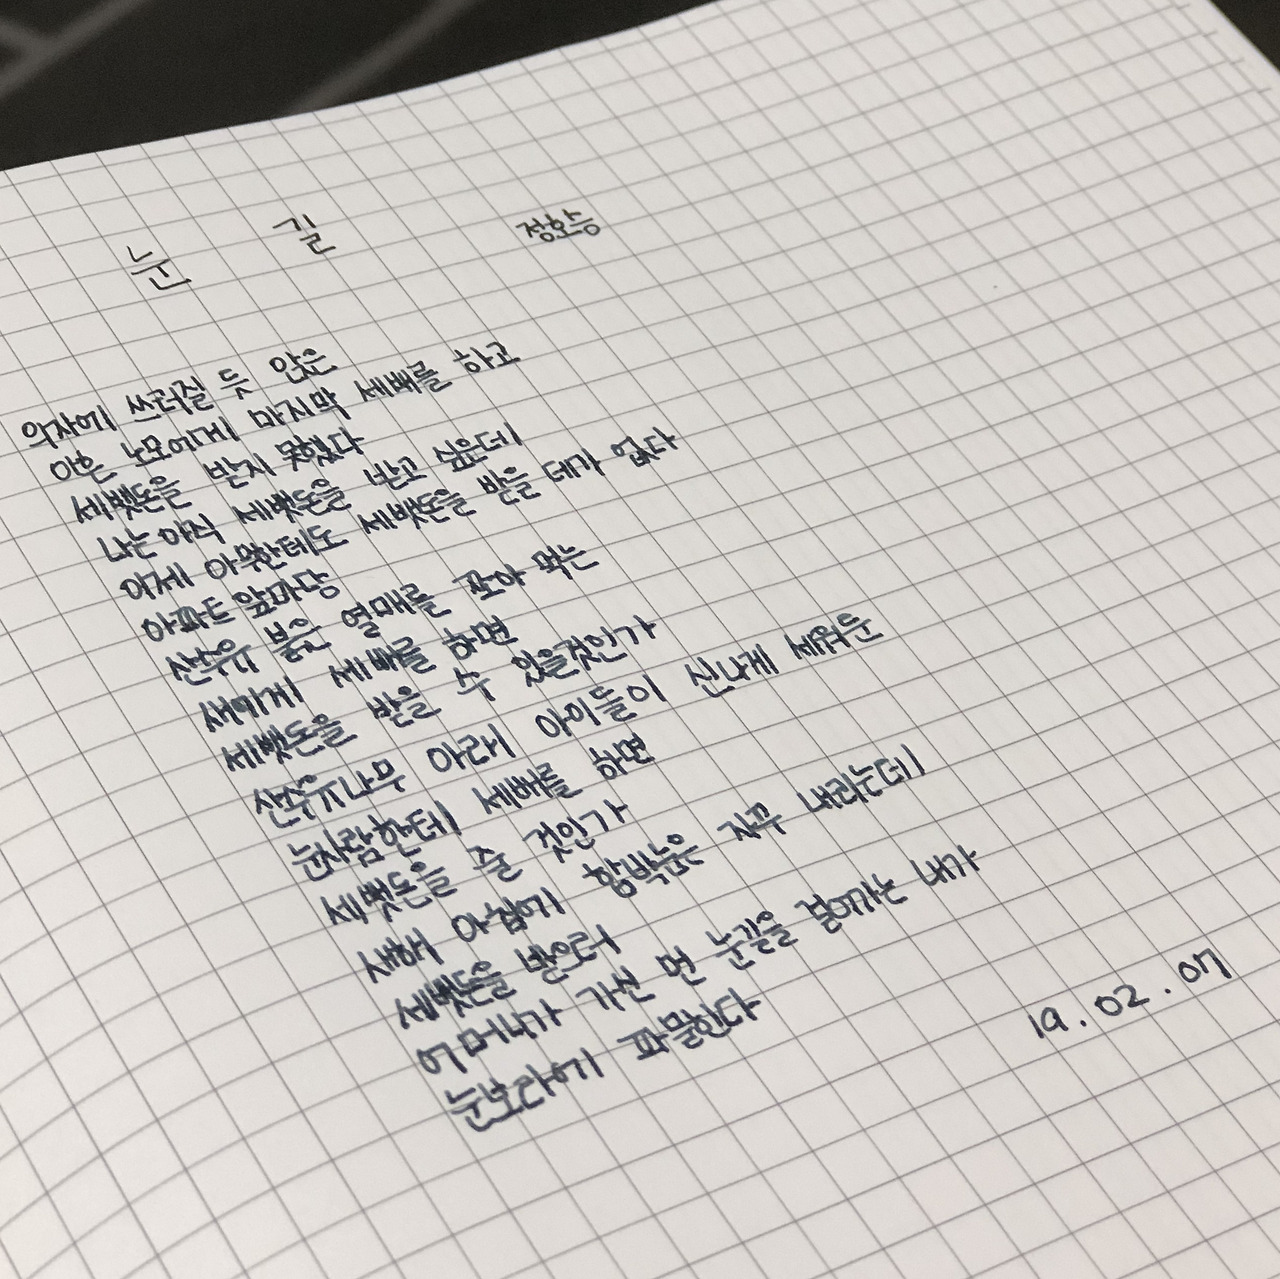 눈 길 정호승
의자에 쓰러질 듯 앉은
아흔 노모에게 마지막 세배를 하고
세뱃돈을 받지 못했다
나는 아직 세뱃돈을 받고 싶은데
이제 아무한테도 세뱃돈을 받을 데가 없다
아파트 앞마당
산수유 붉은 열매를 쪼아 먹는
새에게 세배를 하면
세뱃돈을 받을 수 있을것인가
산수유나무 아래 아이들이 신나게 세워둔
눈사람한테 세배를 하면
세뱃돈을 줄 것인가
새해 아침에 함박눈은 자꾸 내리는데
세뱃돈을 받으러
어머니가 가신 먼 눈길을 걸어가는 내가
눈보라에 파묻힌다
19.02.07